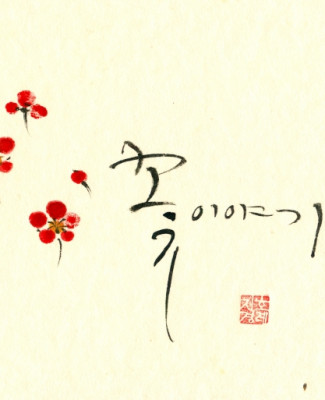 꽃이야기